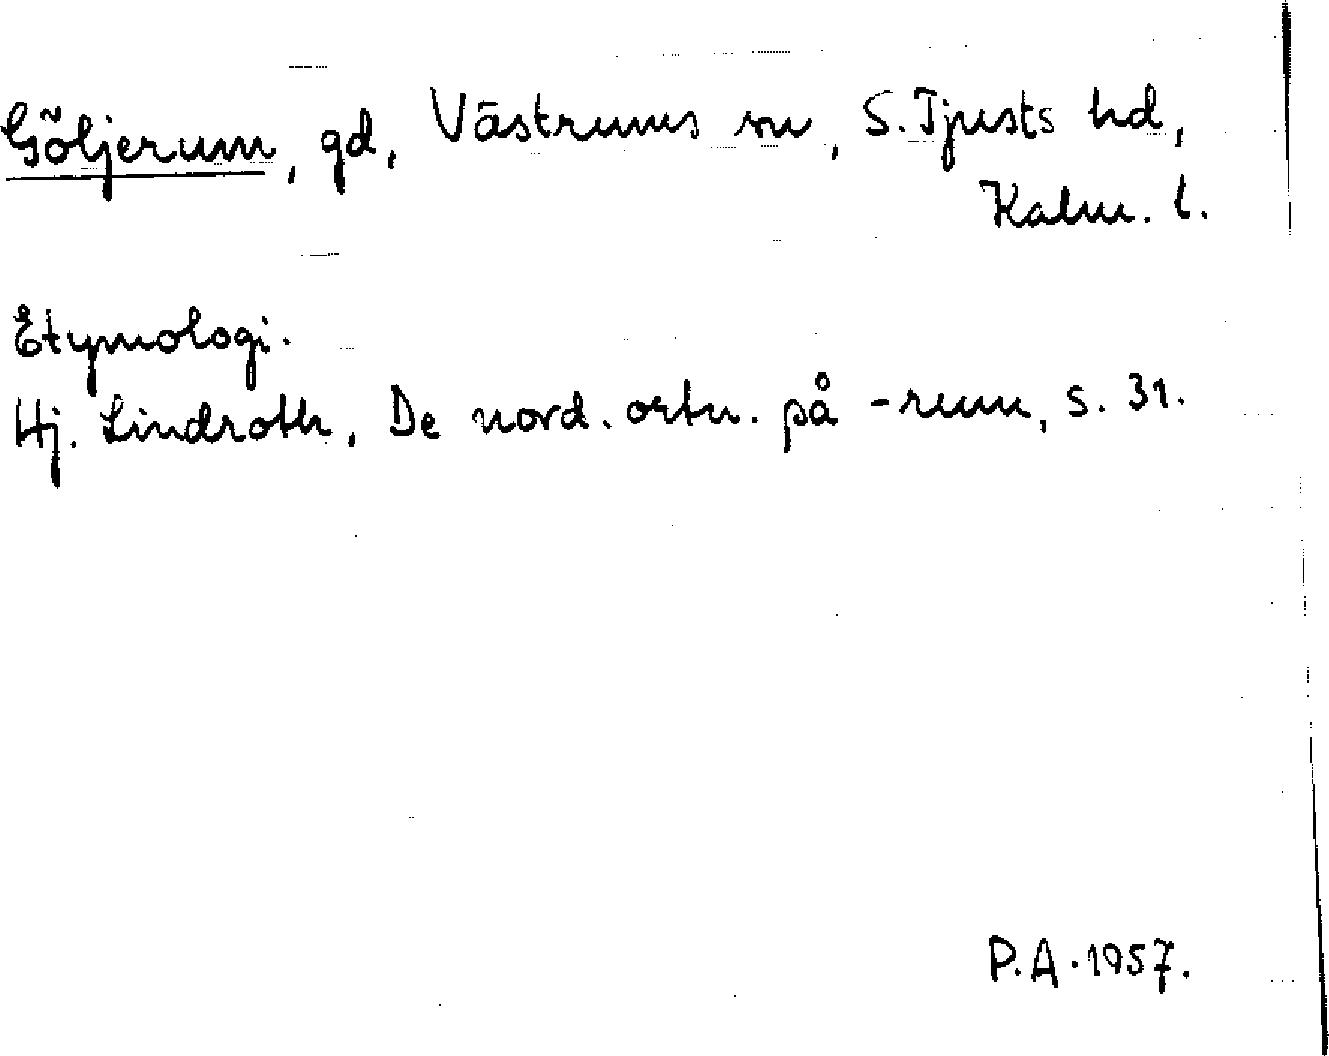 Göljerum, gd, Västrums sn, S. Tjusts hd,
Kalm. l.
Etymologi.
Hj. Lindroth, De nord. ortn. på -rum, s. 31.
P.A. 1957.